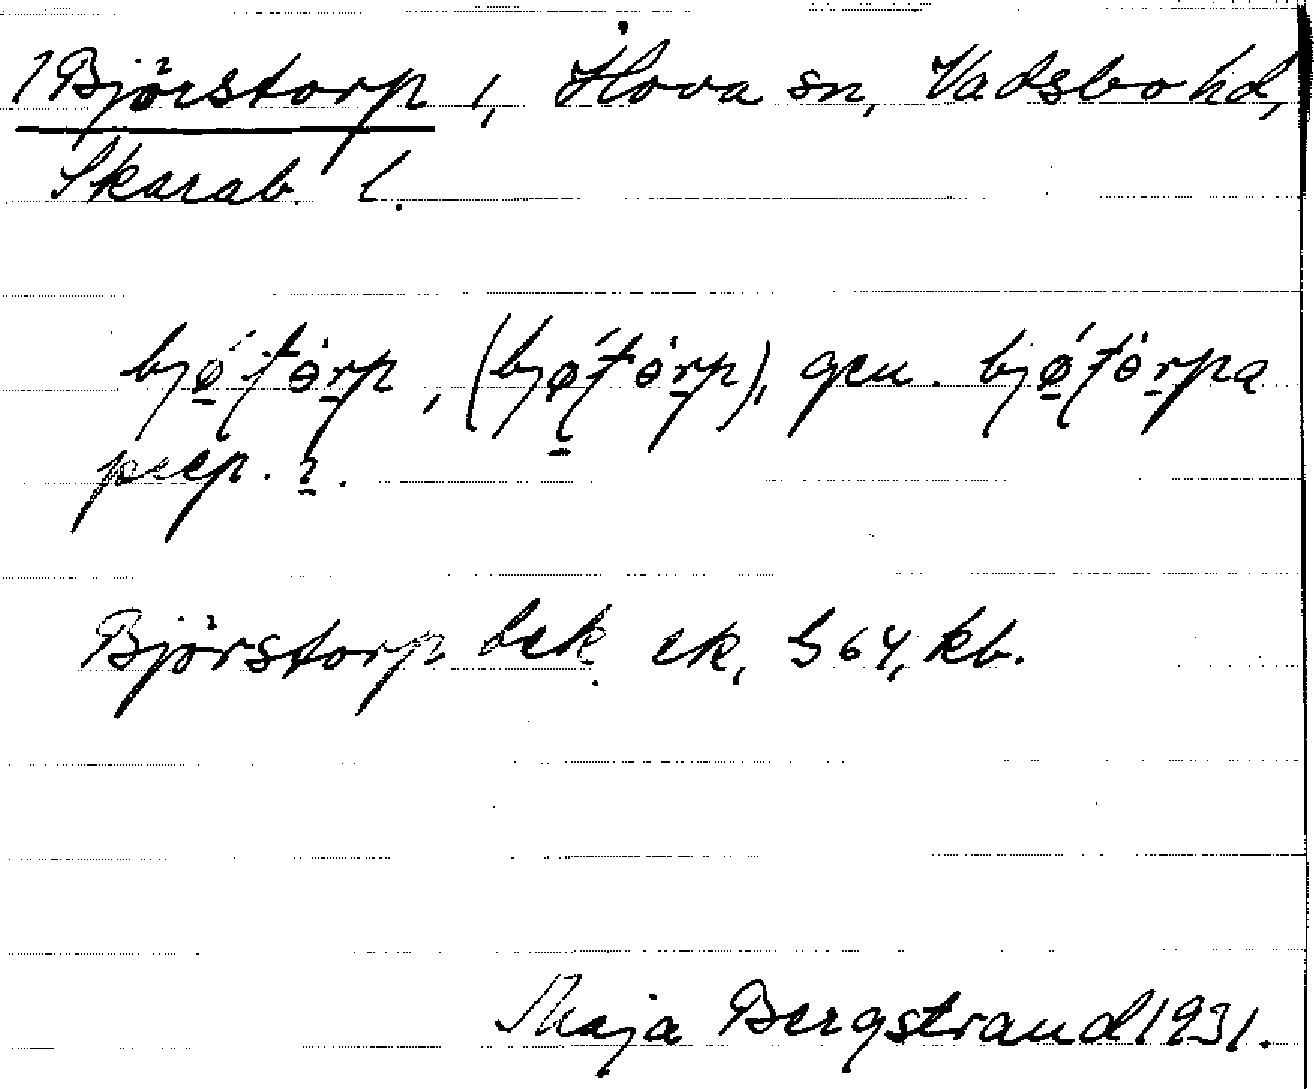 1 Björstorp 1, Hova sn, Vadsbo hd,
Skarab. l.
bjǿ̱ʃtòṟp, (bjǿ̱ʃtòṟp), gen. bjǿ̱ʃtòṟpa
prep. ?.
Björstorp bek. ek, S 64, kb.
Maja Bergstrand 1931.